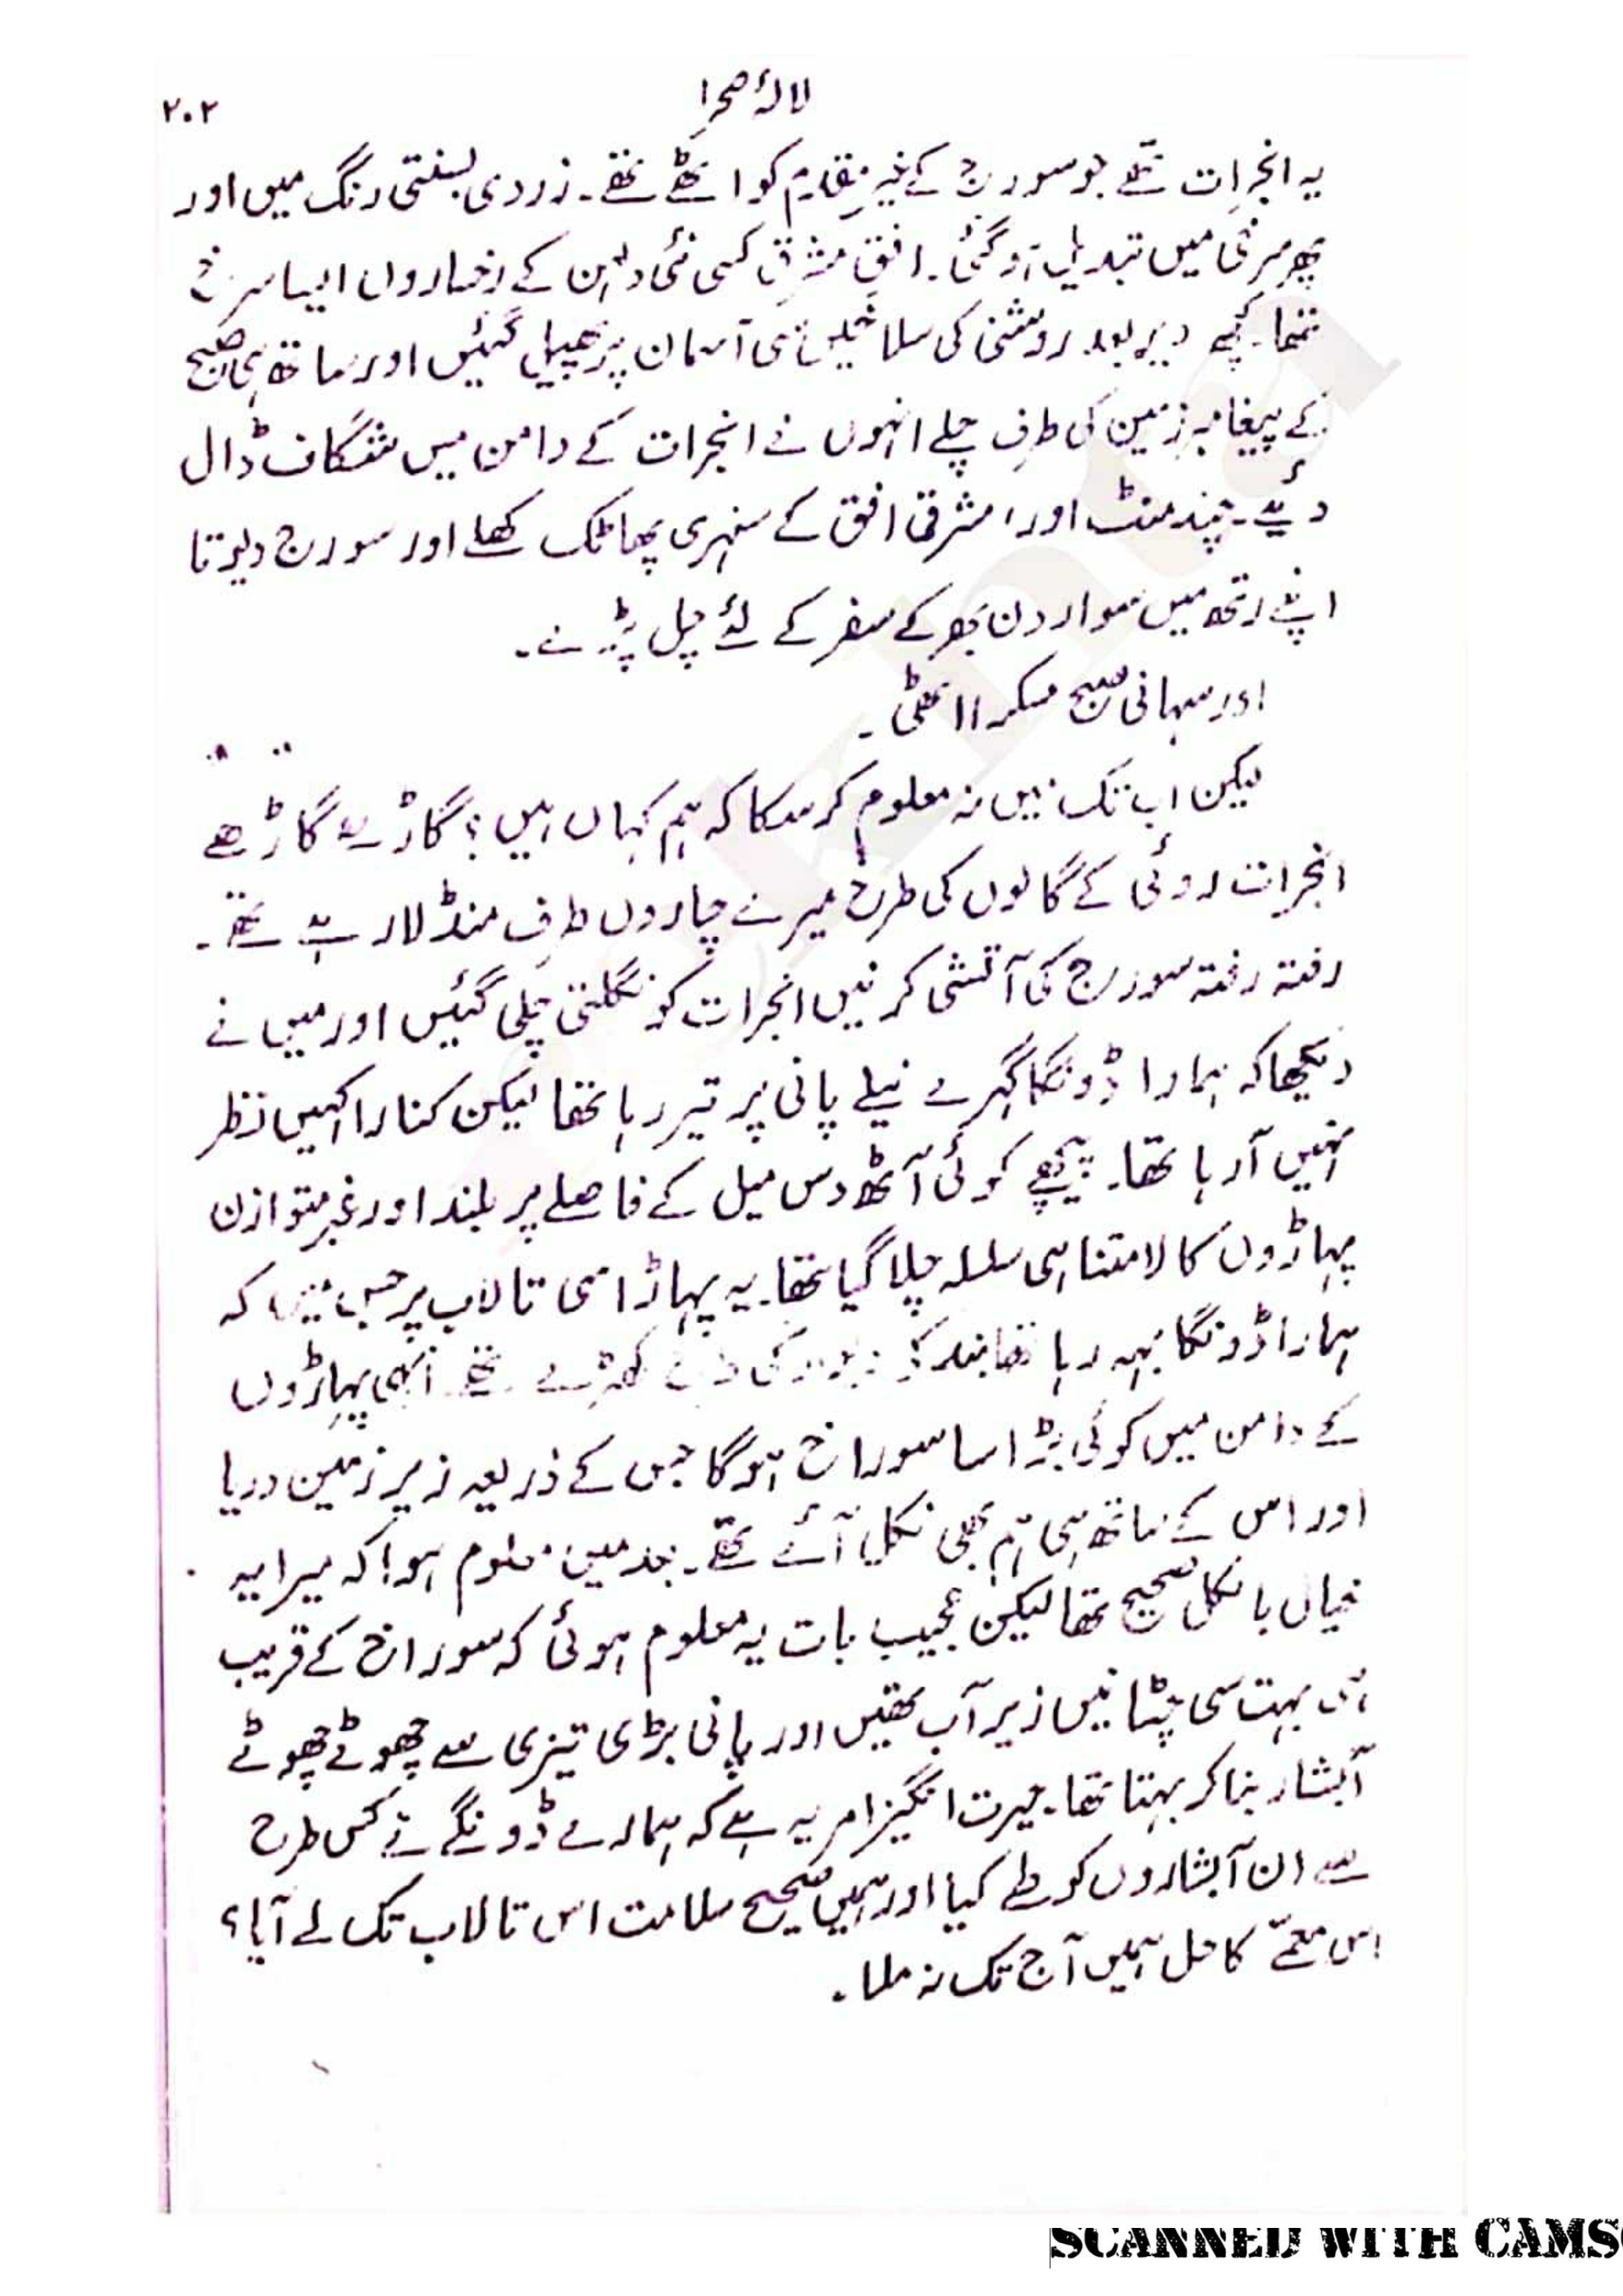 لالۂ صحرا
۲۰۲
یہ ابخرات تھے جو سورج کے خیر مقدم کو اٹھے تھے۔ زردی بسنتی رنگ میں اور
پھر سرخی میں تبدیل ہو گئی۔ افق مشرق کسی نئی دلہن کے رخساروں ایسا سرخ
تھا۔ کچھ دیر بعد روشنی کی سلاخیں سی آسمان پر پھیل گئیں اور ساتھ ہی صبح
کے پیغامبر زمین کی طرف چلے انہوں نے ابخرات کے دامن میں شگاف ڈال
دئیے۔ چند منٹ اور، مشرقی افق کے سنہری پھاٹک کھلے اور سورج دیوتا
اپنے رتھ میں سوار دن بھر کے سفر کے لئے چل پڑے۔
اور سہانی صبح مسکرا اٹھی۔
لیکن اب تک میں نہ معلوم کر سکا کہ ہم کہاں ہیں؟ گاڑھے گاڑھے
ابخرات روئی کے گالوں کی طرح میرے چاروں طرف منڈلا رہے تھے۔
رفتہ رفتہ سورج کی آتشی کرنیں ابخرات کو نگلتی چلی گئیں اور میں نے
دیکھا کہ ہمارا ڈونگا گہرے نیلے پانی پر تیر رہا تھا لیکن کنارا کہیں نظر
نہیں آ رہا تھا۔ پیچھے کوئی آٹھ دس میل کے فاصلے پر بلند اور غیر متوازن
پہاڑوں کا لامتناہی سلسلہ چلا گیا تھا۔ یہ پہاڑ اسی تالاب پر جس میں کہ
ہمارا ڈونگا بہہ رہا تھا بند کی دیوار کی طرح کھڑے تھے۔ انہی پہاڑوں
کے دامن میں کوئی بڑا سا سوراخ ہوگا جس کے ذریعہ زیر زمین دریا
اور اس کے ساتھ ہی ہم بھی نکل آئے تھے۔ بعد میں معلوم ہوا کہ میرا یہ
خیال بالکل صحیح تھا لیکن عجیب بات یہ معلوم ہوئی کہ سوراخ کے قریب
ہی بہت سی چٹانیں زیر آب تھیں اور پانی بڑی تیزی سے چھوٹے چھوٹے
آبشار بنا کر بہتا تھا۔ حیرت انگیز امر یہ ہے کہ ہمارے ڈونگے نے کس طرح
سے ان آبشاروں کو طے کیا اور ہمیں صحیح سلامت اس تالاب تک لے آیا؟
اس معمّے کا حل ہمیں آج تک نہ ملا۔
SCANNED WITH CAMS